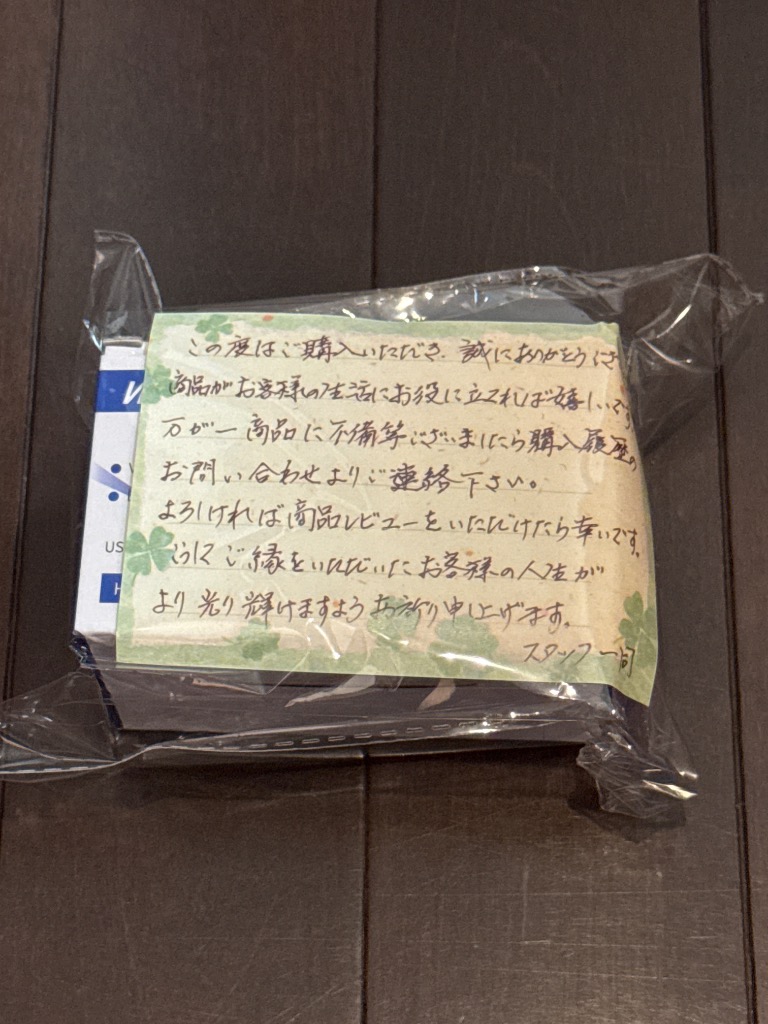 この度はご購入いただき、誠にありがとうござ
商品がお客様の生活にお役に立てれば嬉しいです
万が一商品に不備等ございましたら購入履歴の
お問い合わせよりご連絡下さい。
よろしければ商品レビューをいただけたら幸いです。
ご縁をいただいたお客様の人生が
より光り輝けますようお祈り申し上げます。
スタッフ一同
US